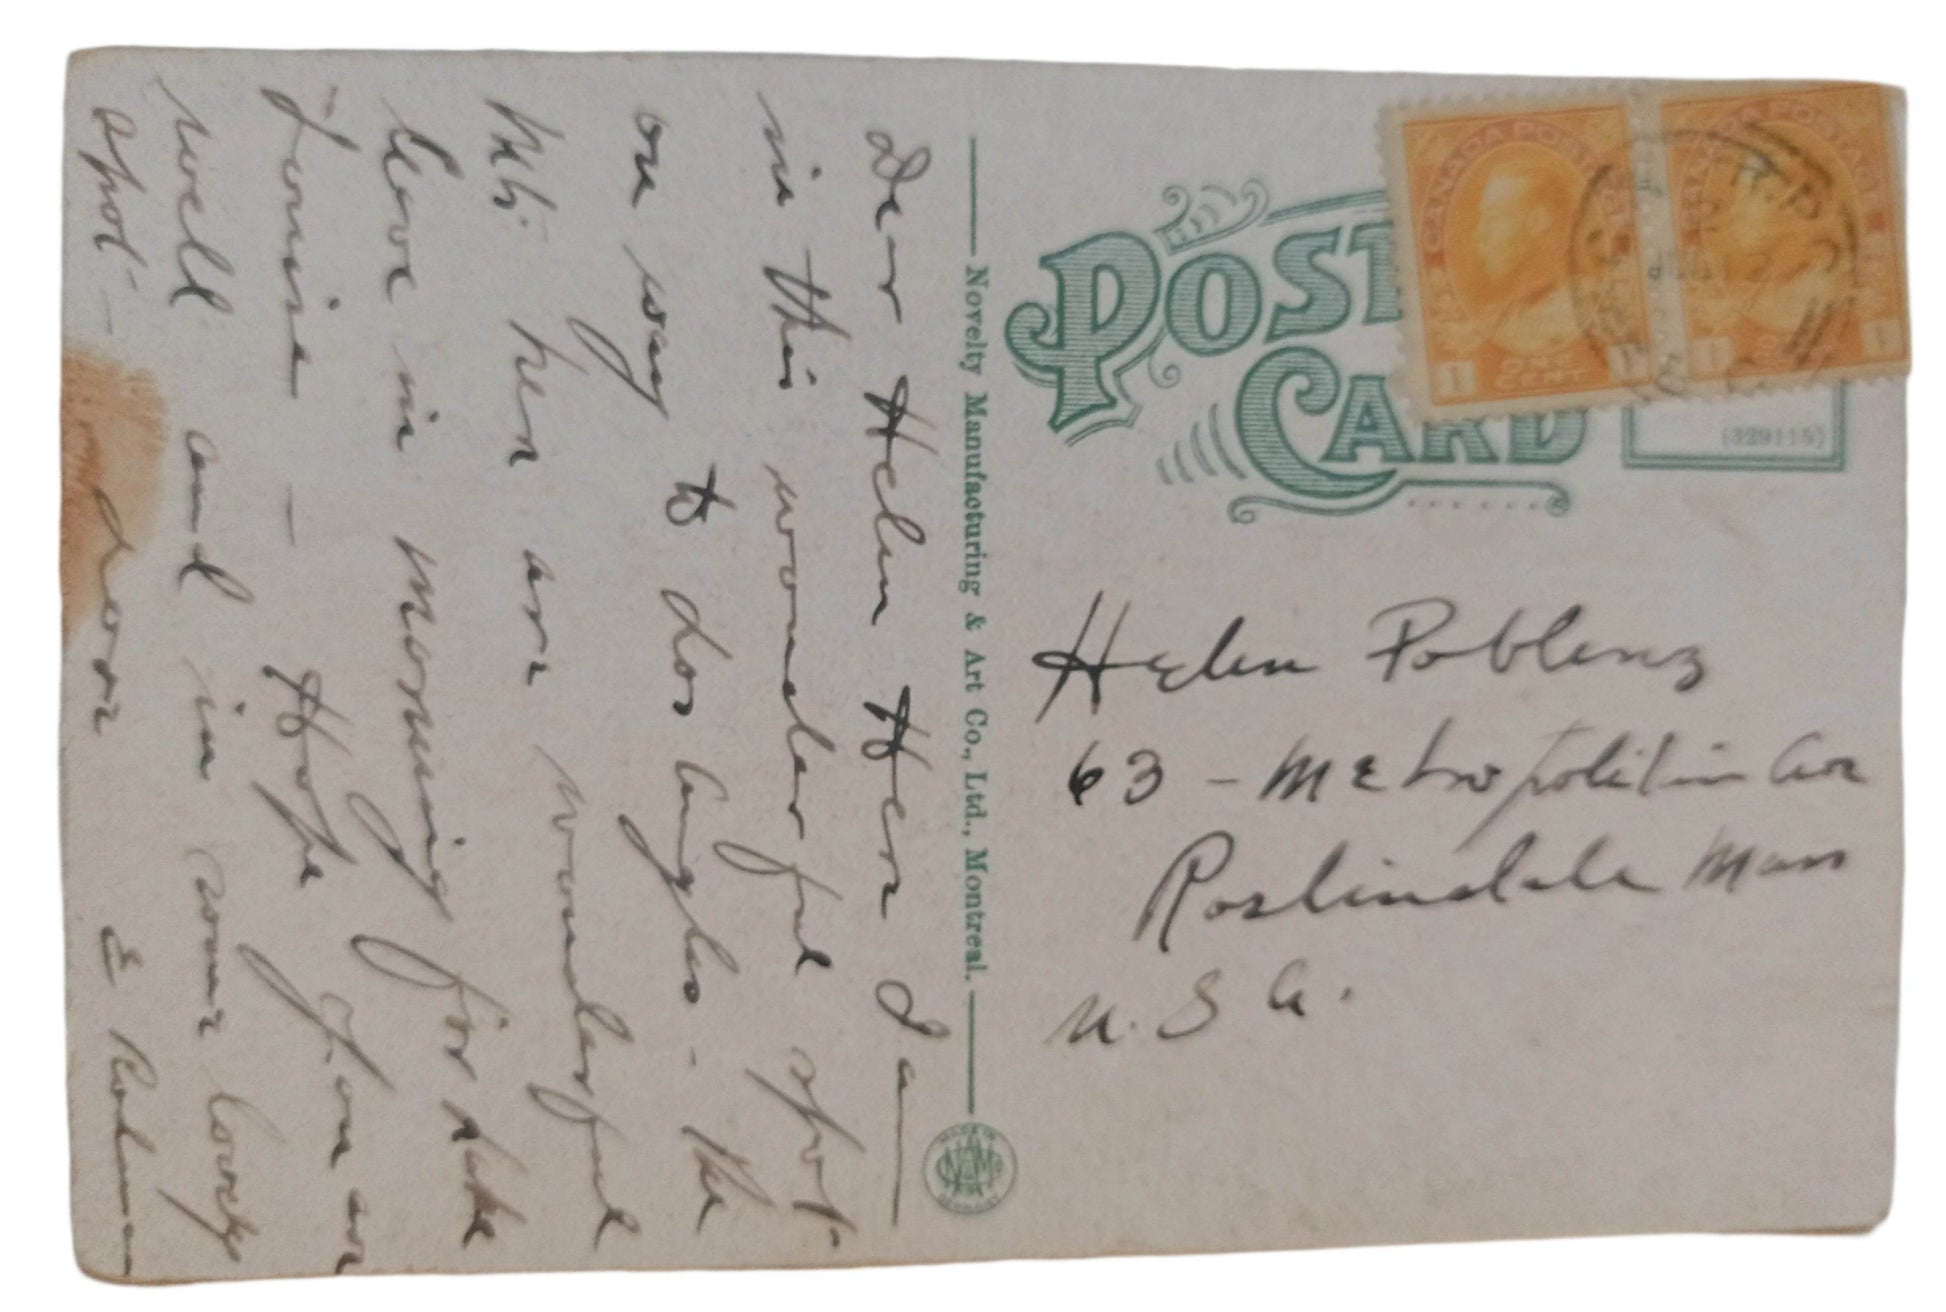 Dear Helen Here I am
in this wonderful spot
on way to Los Angles - the
Mts. here are wonderful
leave in morning for Lake
Louise - Hope you are
well and in some lovely
spot -
Love
E Rodman
Novelty Manufacturing & Art Co., Ltd., Montreal.
MADE IN
POST
CARD
CANADA POSTAGE
1 ONE CENT 1
CANADA POSTAGE
1 ONE CENT 1
R.P.O.
(329115)
Helen Poblenz
63 - Metropolitin Ave
Roslindale Mass
U. S. A.